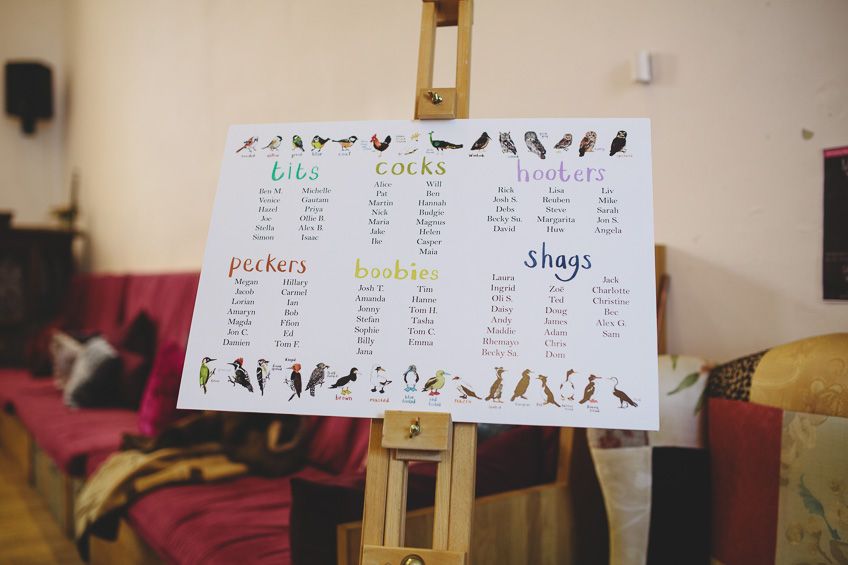 tits
Ben M. Michelle
Venice Gautam
Hazel Priya
Joe Ollie B.
Stella Alex B.
Simon Isaac
cocks
Alice Will
Pat Ben
Martin Hannah
Nick Budgie
Maria Magnus
Jake Helen
Ike Casper
Maia
hooters
Rick Lisa Liv
Josh S. Reuben Mike
Debs Steve Sarah
Becky Su. Margarita Jon S.
David Huw Angela
peckers
Megan Hillary
Jacob Carmel
Lorian Ian
Amaryn Bob
Magda Ffion
Jon C. Ed
Damien Tom F.
boobies
Josh T. Tim
Amanda Hanne
Jonny Tom H.
Stefan Tasha
Sophie Tom C.
Billy Emma
Jana
shags
Laura Zoë Jack
Ingrid Ted Charlotte
Oli S. Doug Christine
Daisy James Bec
Andy Adam Alex G.
Maddie Chris Sam
Rhemayo Dom
Becky Sa.
brown
masked